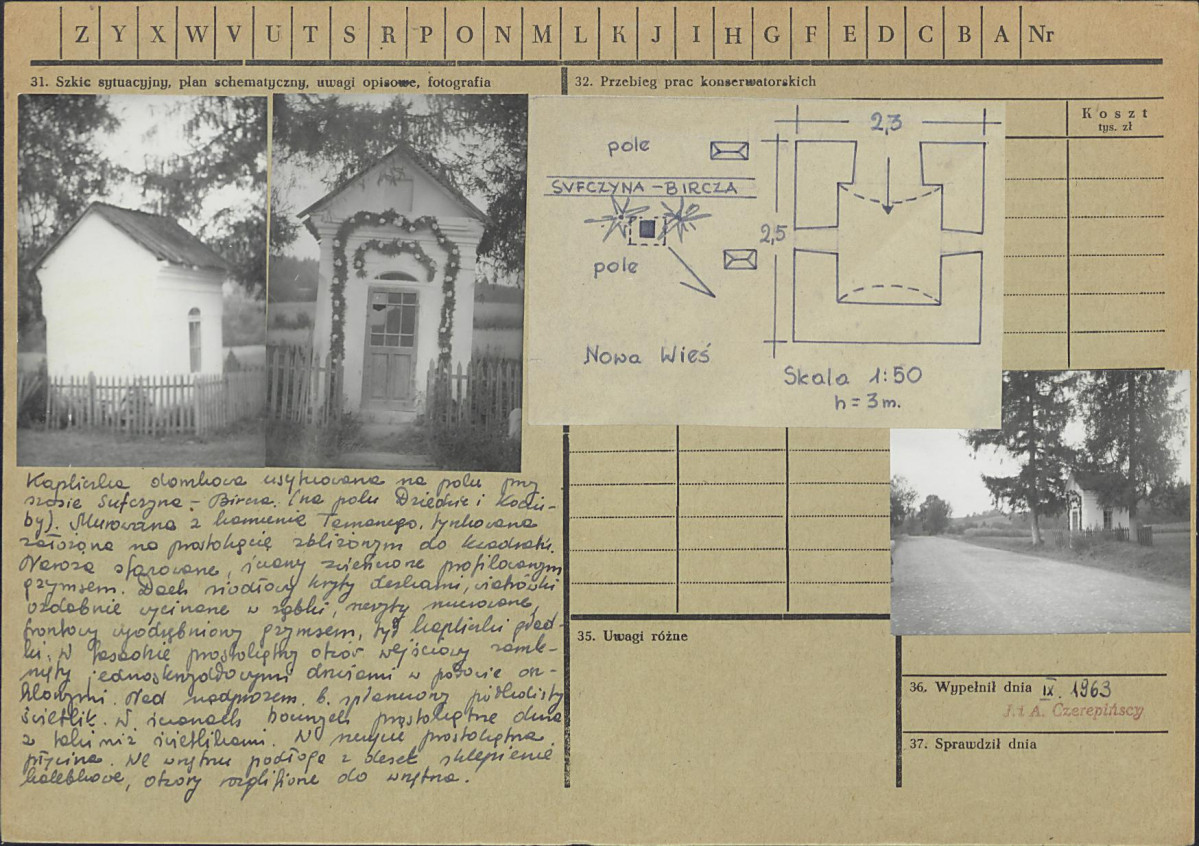 Z Y X W V U T S R P O N M L K J I H G F E D C B A Nr
31. Szkic sytuacyjny, plan schematyczny, uwagi opisowe, fotografia
32. Przebieg prac konserwatorskich
Koszt
tys. zł
pole
SUFCZYNA – BIRCZA
pole
Nowa Wieś
2,3
2,5
Skala 1:50
h = 3 m.
Kapliczka domkowa usytuowana na polu przy
szosie Sufczyna – Bircza. (na polu Dziedzic i
by). Murowana z kamienia łamanego, tynkowana
założona na prostokącie zbliżonym do kwadratu.
Naroża sfazowane, ściany zwieńczone profilowanym
gzymsem. Dach siodłowy kryty deskami, wiatrówki
ozdobnie wycinane w ząbki, szczyty murowane,
frontowy wyodrębniony gzymsem, tył kapliczki gład-
ki. W fasadzie prostokątny otwór wejściowy zamk-
nięty jednoskrzydłowymi drzwiami w połowie osz-
klonymi. Nad nadprożem b. spłaszczony półkolisty
świetlik. W ścianach bocznych prostokątne okna
z takimiż świetlikami. W szczycie prostokątna
płycina. We wnętrzu podłoga z desek sklepienie
kolebkowe, otwory rozglifione do wnętrza.
35. Uwagi różne
36. Wypełnił dnia IX. 1963
J. i A. Czerepińscy
37. Sprawdził dnia